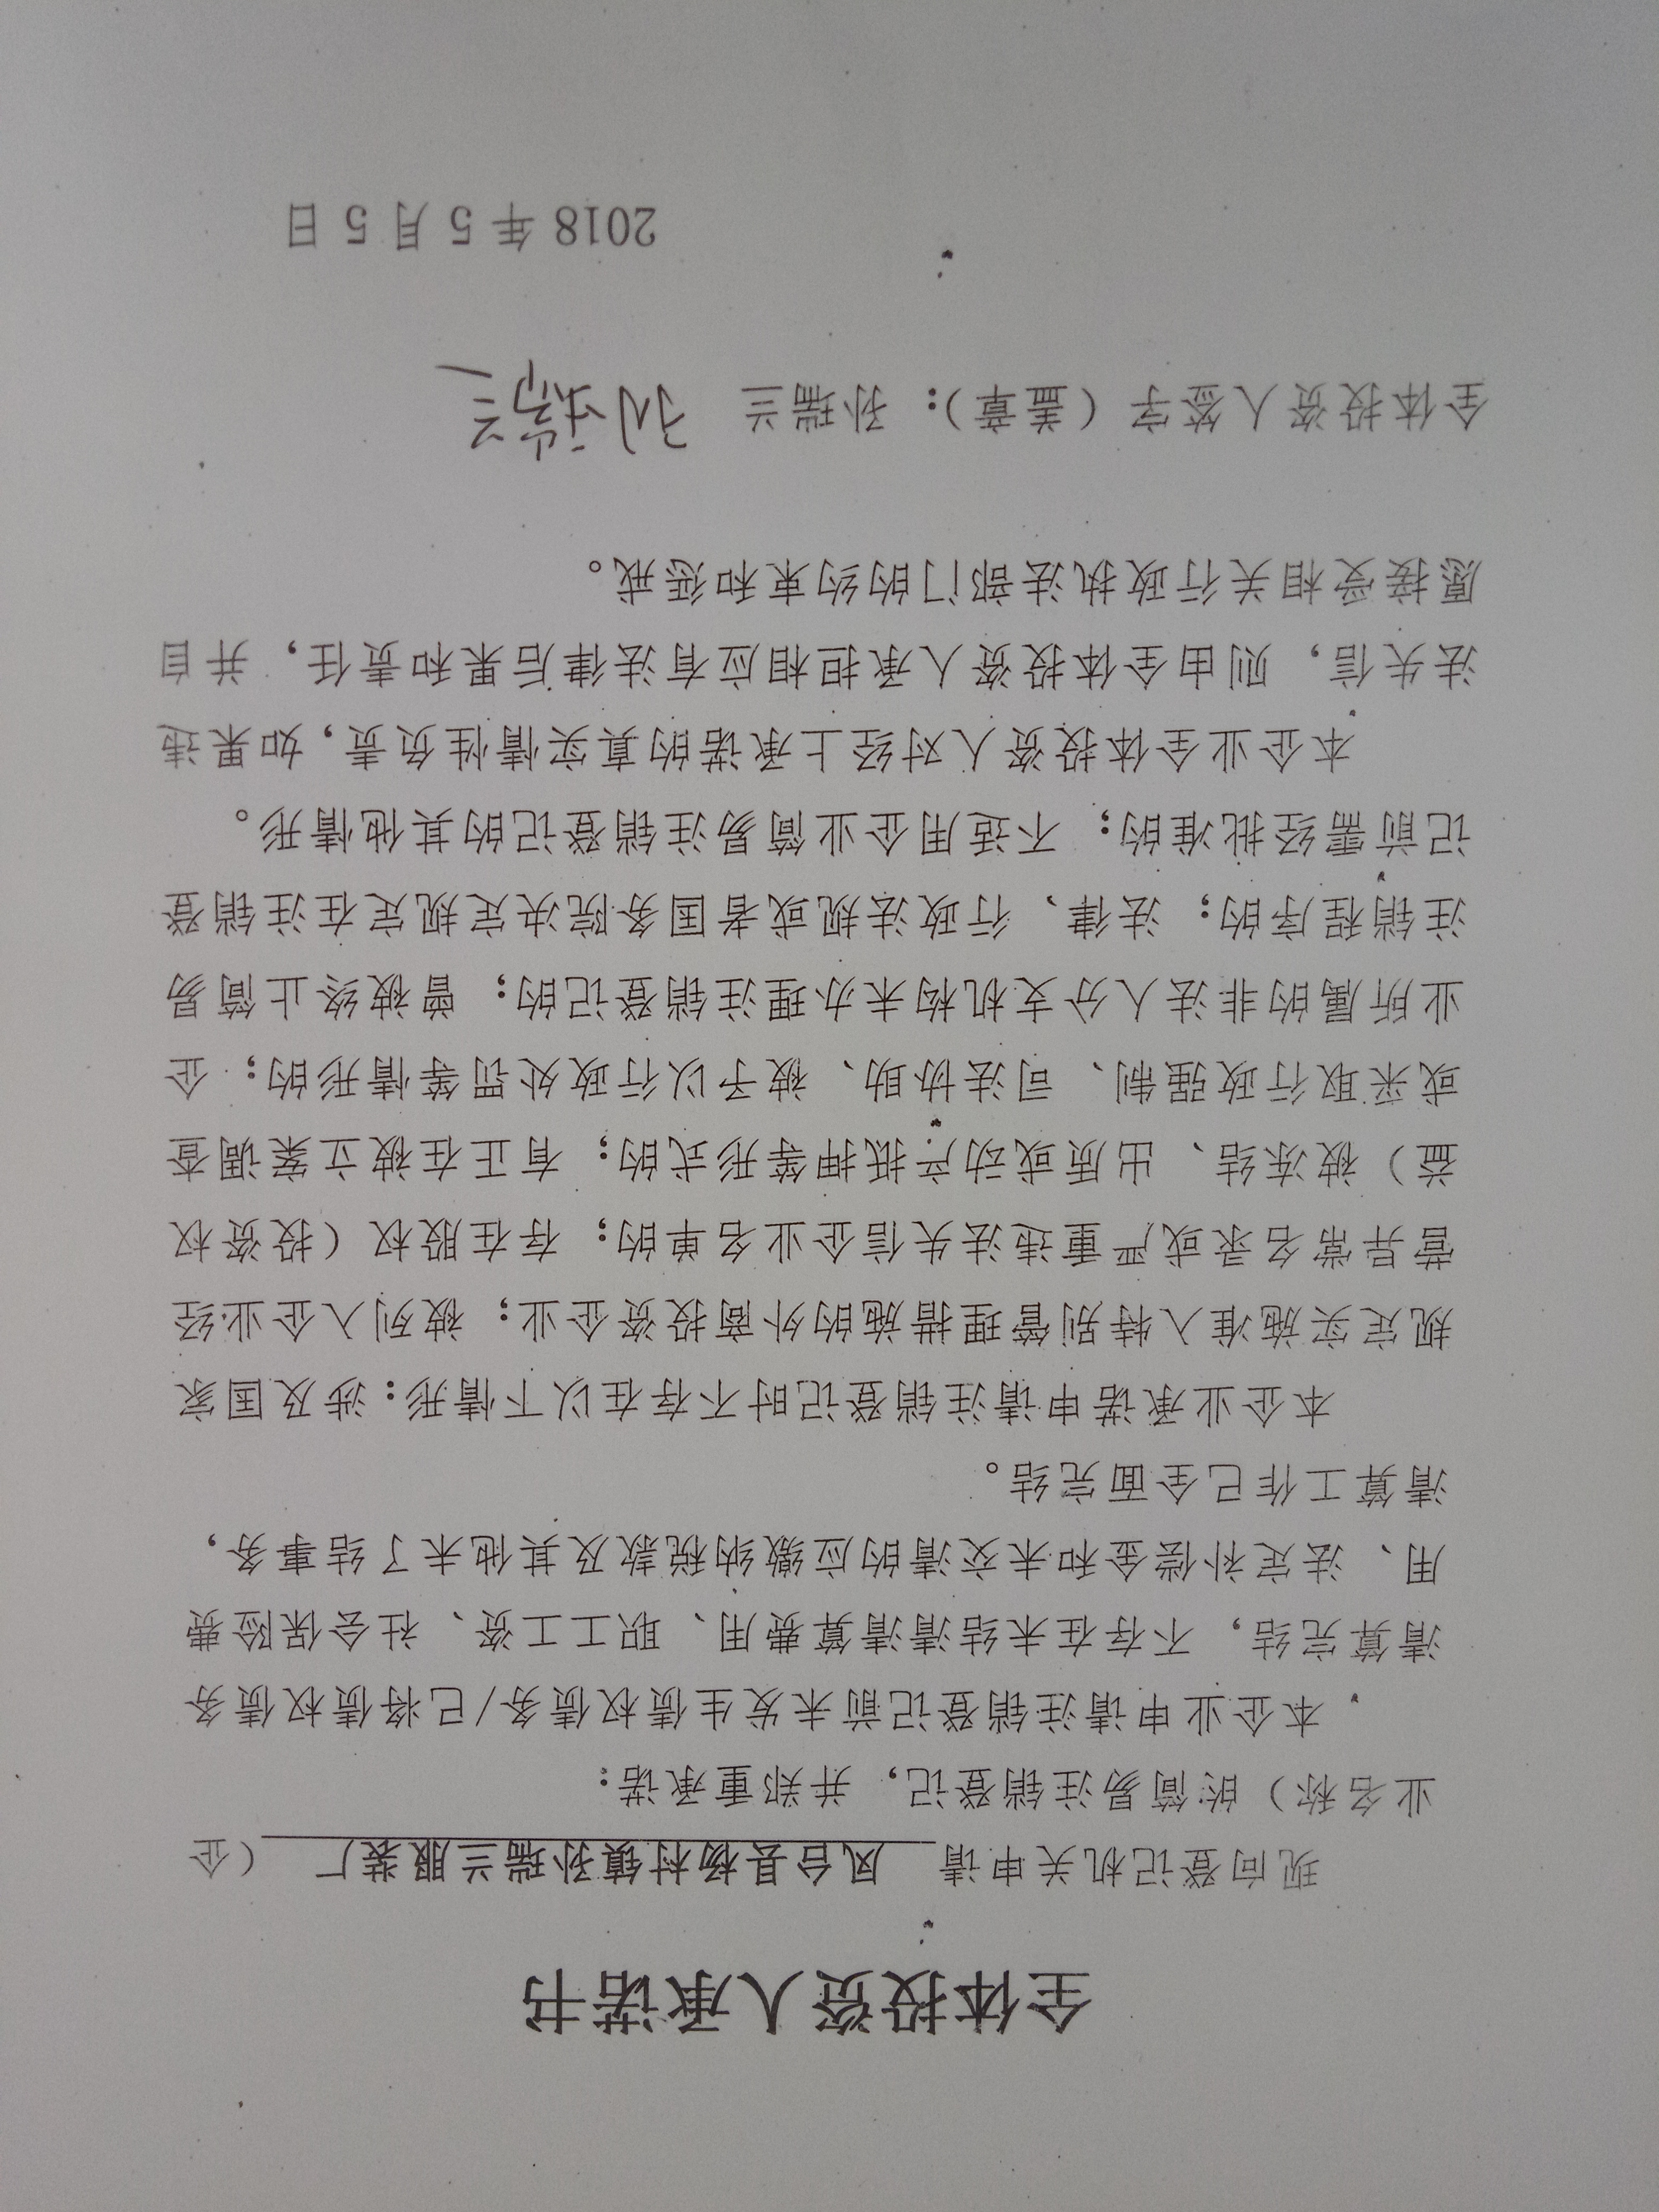 全体投资人承诺书
现向登记机关申请 凤台县杨村镇孙瑞兰服装厂 （企
业名称）的简易注销登记，并郑重承诺：
本企业申请注销登记前未发生债权债务/已将债权债务
清算完结，不存在未结清清算费用、职工工资、社会保险费
用、法定补偿金和未交清的应缴纳税款及其他未了结事务，
清算工作已全面完结。
本企业承诺申请注销登记时不存在以下情形：涉及国家
规定实施准入特别管理措施的外商投资企业；被列入企业经
营异常名录或严重违法失信企业名单的；存在股权（投资权
益）被冻结、出质或动产抵押等形式的；有正在被立案调查
或采取行政强制、司法协助、被予以行政处罚等情形的；企
业所属的非法人分支机构未办理注销登记的；曾被终止简易
注销程序的；法律、行政法规或者国务院决定规定在注销登
记前需经批准的；不适用企业简易注销登记的其他情形。
本企业全体投资人对经上承诺的真实情性负责，如果违
法失信，则由全体投资人承担相应有法律后果和责任，并自
愿接受相关行政执法部门的约束和惩戒。
全体投资人签字（盖章）：孙瑞兰 孙瑞兰
2018 年 5 月 5 日